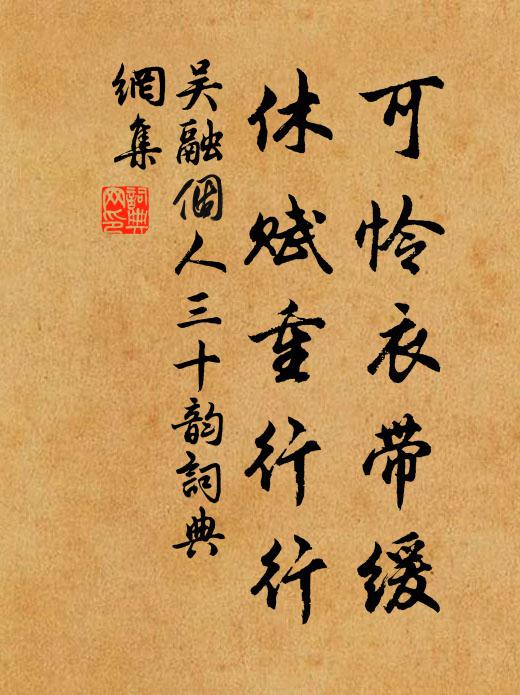 可怜衣带缓
休赋重行行
吴融個人三十韵詞典
網集
詞典
网印